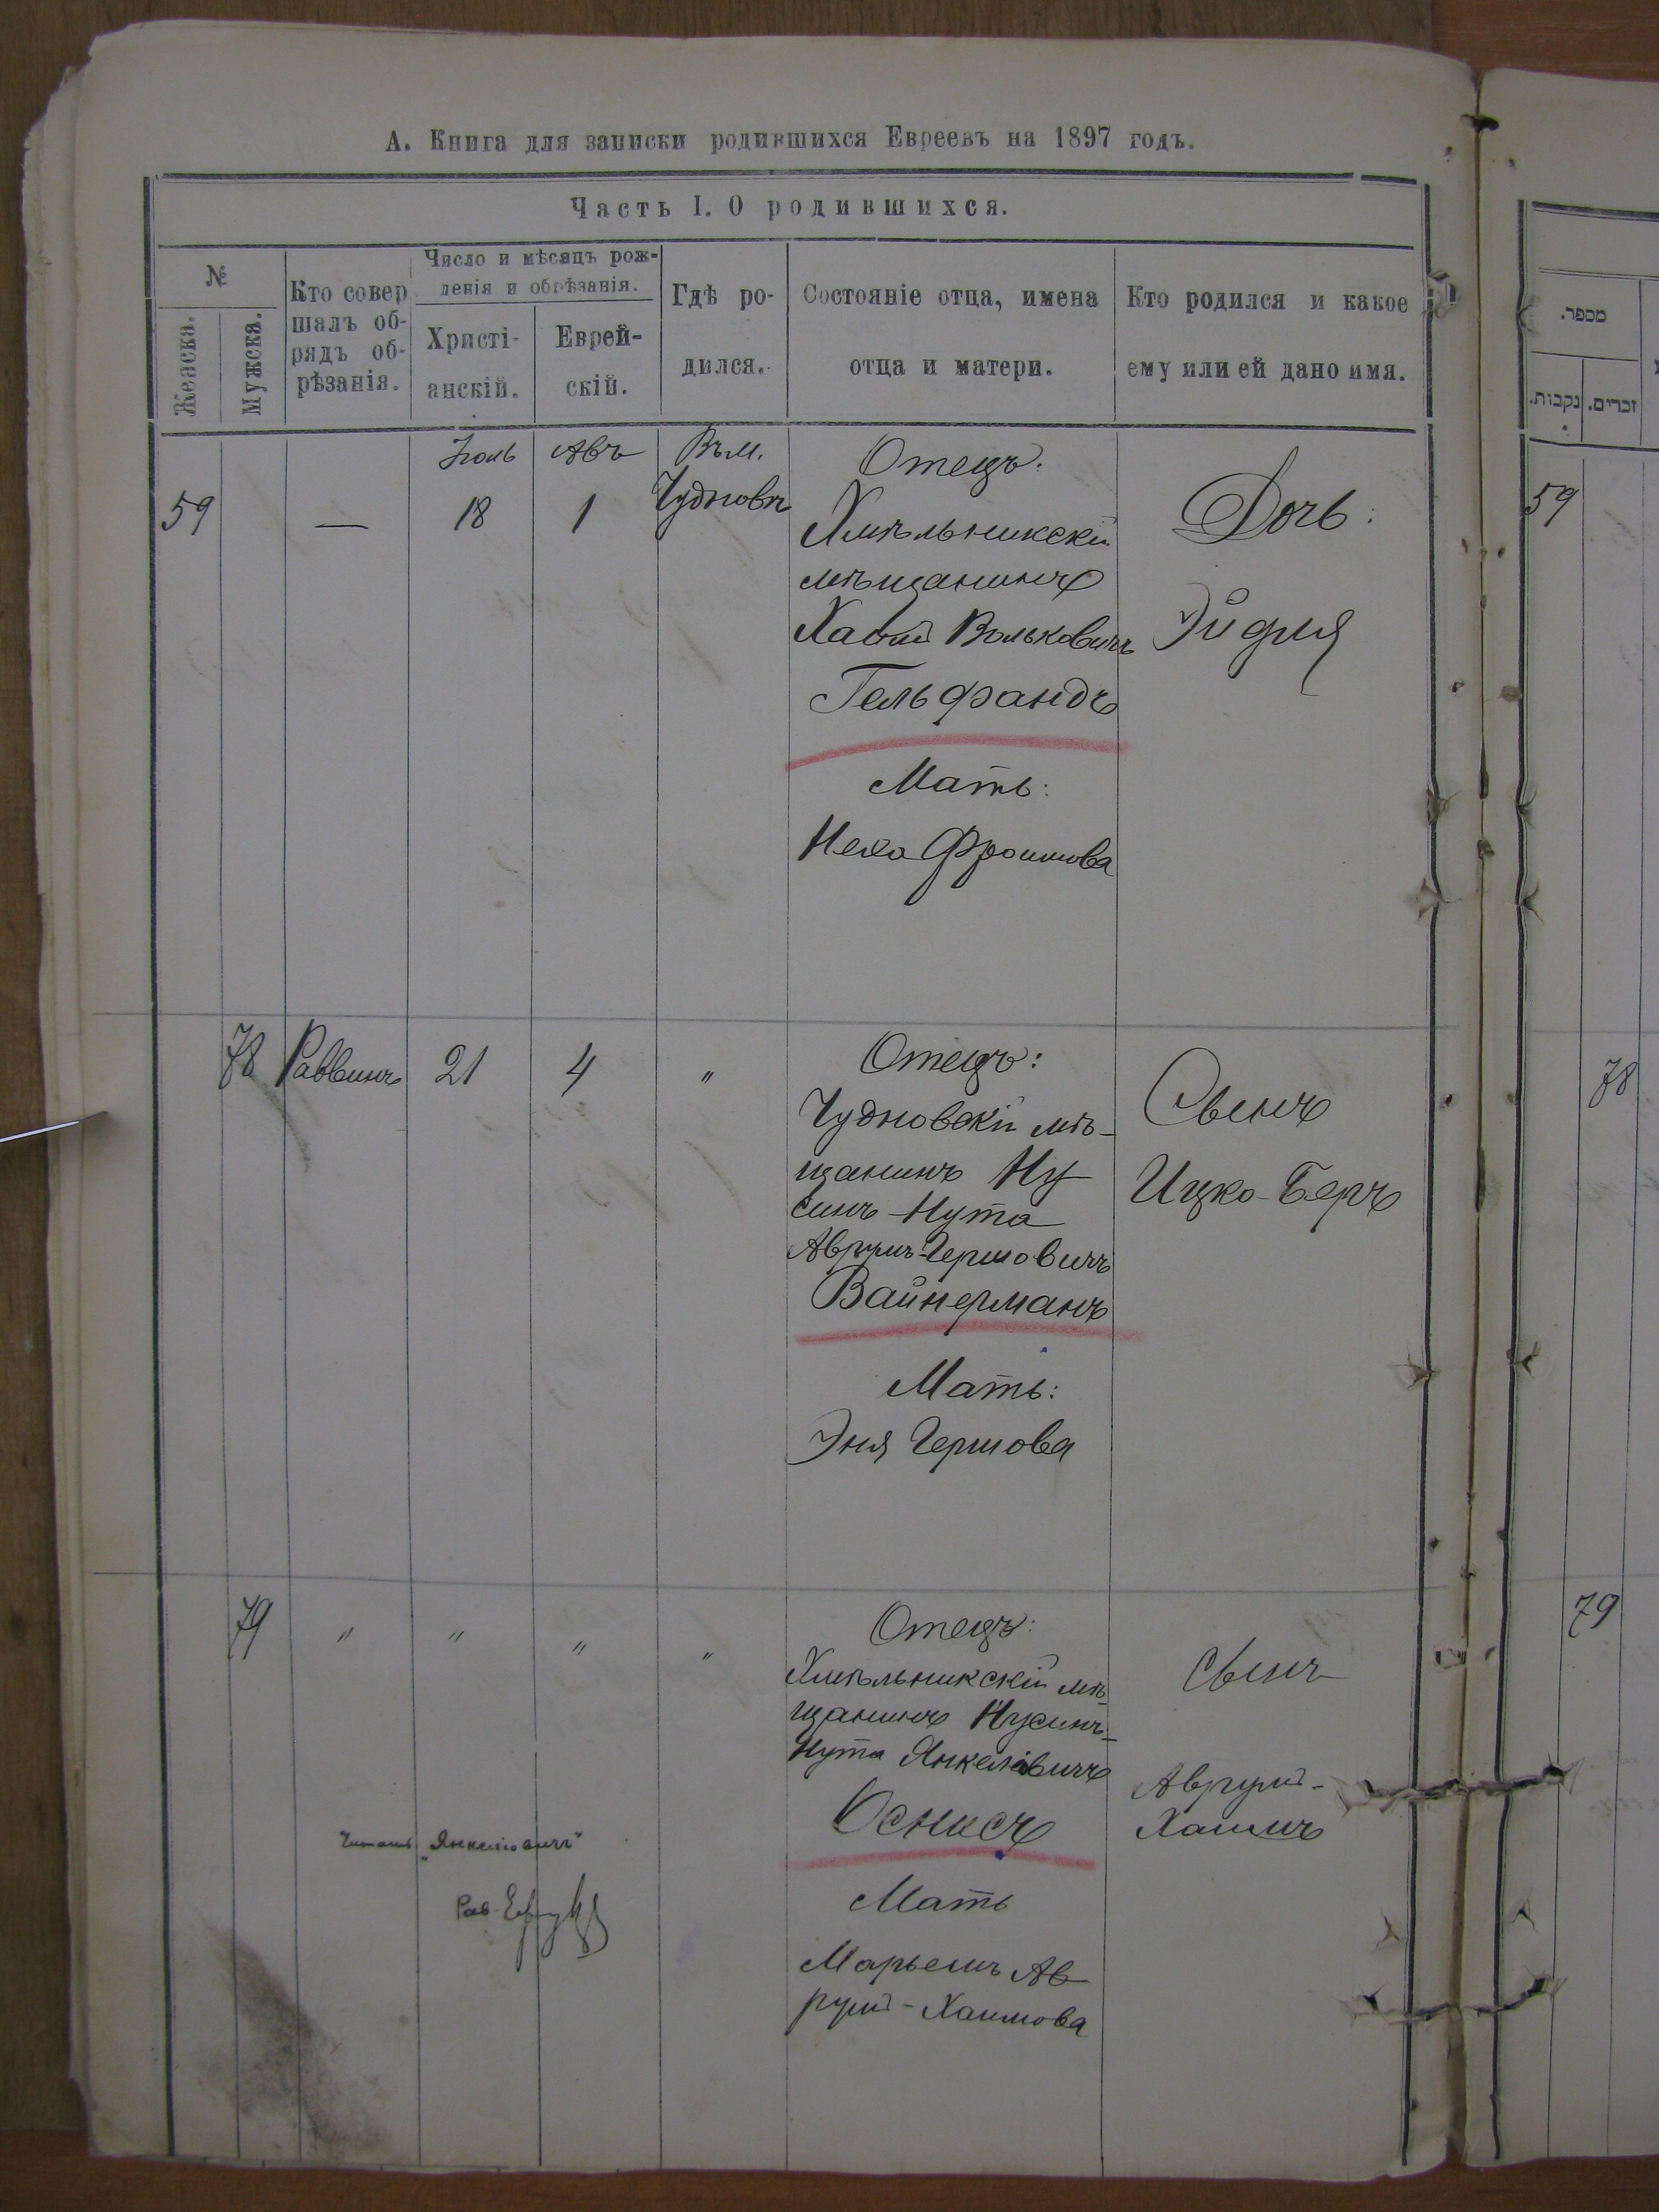 А. Книга для записки родившихся Евреевъ на 1897 годъ.
Часть I. О родившихся.
№
Женска.
Мужска.
Кто совер
шалъ об-
рядъ об-
рѣзанія.
Число и мѣсяцъ рож-
денія и обрѣзанія.
Христі-
анскій.
Еврей-
скій.
Гдѣ ро-
дился.
Состояніе отца, имена
отца и матери.
Кто родился и какое
ему или ей дано имя.
Іюль
Авъ
Въ м.
Чудновъ
59
—
18
1
Отецъ:
Хмѣльникскій
мѣщанинъ
Хаимъ Вольковичъ
Гельфандъ
Мать:
Неха Фроимова
Дочь:
Эйдля
78
Раввинъ
21
4
"
Отецъ:
Чудновскій мѣ-
щанинъ Ну
синъ-Нута
Аврумъ-Гершовичъ
Вайнерманъ
Мать:
Эня Гершова
Сынъ
Ицко-Беръ
79
"
"
"
"
Отецъ:
Хмѣльникскій мѣ-
щанинъ Нусинъ-
Нута Янкелевичъ
Оснисъ
Мать
Марьемъ Ав-
румъ-Хаимова
Сынъ
Аврумъ-
Хаимъ
Читать „Янкелевичъ"
Рав.
מספר.
נקבות.
זכרים.
59
78
79